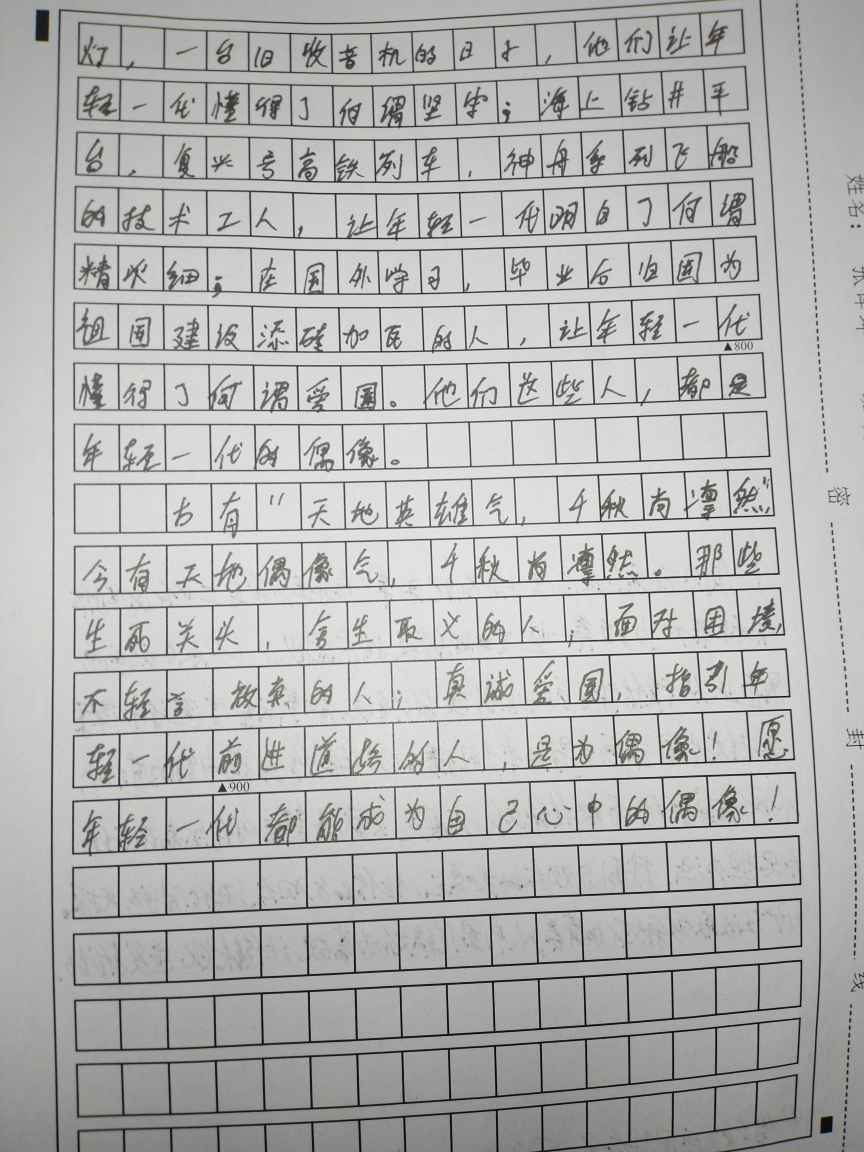 灯，一台旧收音机的日子，他们让年
轻一代懂得了何谓坚牢；海上钻井平
台，复兴号高铁列车，神舟系列飞船
的技术工人，让年轻一代明白了何谓
精次细；在国外学习，毕业后归国为
祖国建设添砖加瓦的人，让年轻一代
▲800
懂得了何谓爱国。他们这些人，都是
年轻一代的偶像。
古有“天地英雄气，千秋尚凛然”
今有天地偶像气，千秋尚凛然。那些
生死关头，舍生取义的人；面对困境，
不轻言放弃的人；真诚爱国，指引年
轻一代前进道路的人，是为偶像！愿
▲900
年轻一代都能成为自己心中的偶像！
姓名：
密
封
线